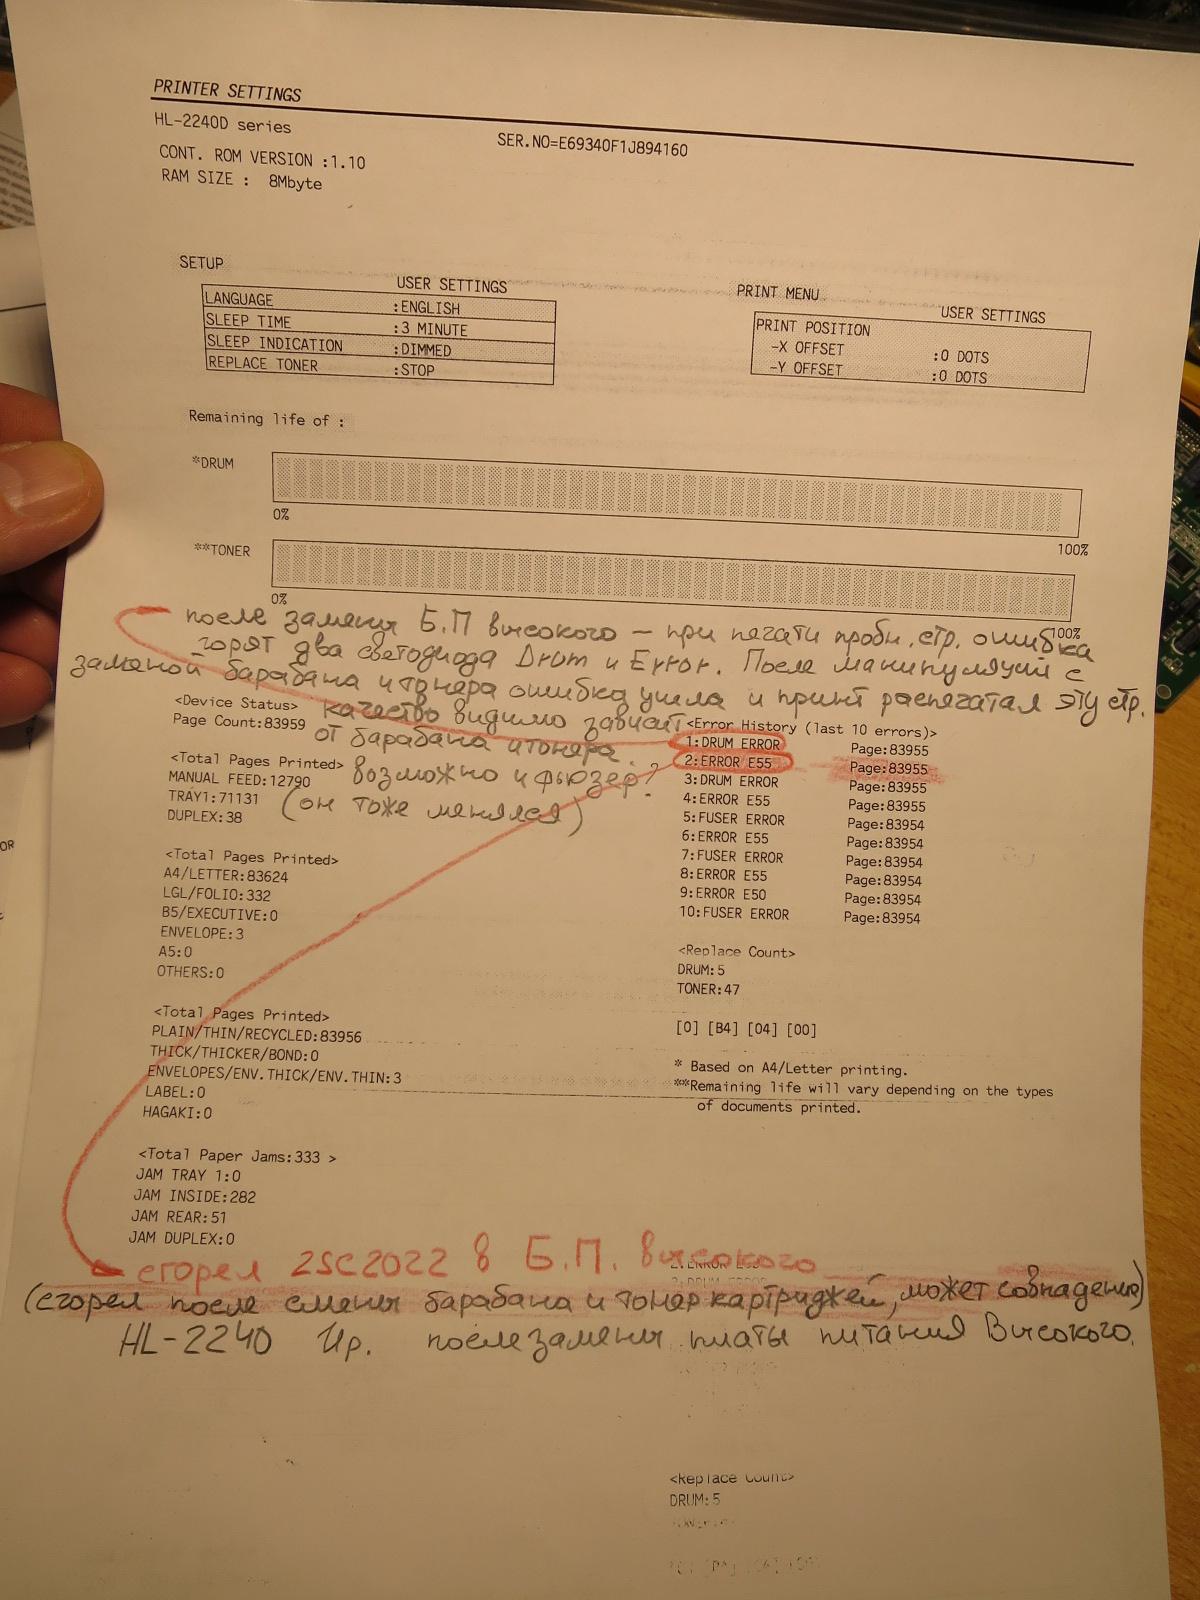 PRINTER SETTINGS
HL-2240D series
SER.NO=E69340F1J894160
CONT. ROM VERSION :1.10
RAM SIZE : 8Mbyte
SETUP
USER SETTINGS
LANGUAGE :ENGLISH
SLEEP TIME :3 MINUTE
SLEEP INDICATION :DIMMED
REPLACE TONER :STOP
PRINT MENU
USER SETTINGS
PRINT POSITION
-X OFFSET :0 DOTS
-Y OFFSET :0 DOTS
Remaining life of :
*DRUM
0% 100%
**TONER
0% 100%
после замены Б.П высокого – при печати пробн. стр. ошибка
горят два светодиода Drum и Error. После манипуляций с
заменой барабана и тонера ошибка ушла и принт распечатал эту стр.
качество видимо зависит
от барабана и тонера.
возможно и фьюзер?
(он тоже менялся)
<Device Status>
Page Count:83959
<Total Pages Printed>
MANUAL FEED:12790
TRAY1:71131
DUPLEX:38
<Total Pages Printed>
A4/LETTER:83624
LGL/FOLIO:332
B5/EXECUTIVE:0
ENVELOPE:3
A5:0
OTHERS:0
<Total Pages Printed>
PLAIN/THIN/RECYCLED:83956
THICK/THICKER/BOND:0
ENVELOPES/ENV.THICK/ENV.THIN:3
LABEL:0
HAGAKI:0
<Total Paper Jams:333 >
JAM TRAY 1:0
JAM INSIDE:282
JAM REAR:51
JAM DUPLEX:0
<Error History (last 10 errors)>
1:DRUM ERROR Page:83955
2:ERROR E55 Page:83955
3:DRUM ERROR Page:83955
4:ERROR E55 Page:83955
5:FUSER ERROR Page:83954
6:ERROR E55 Page:83954
7:FUSER ERROR Page:83954
8:ERROR E55 Page:83954
9:ERROR E50 Page:83954
10:FUSER ERROR Page:83954
<Replace Count>
DRUM:5
TONER:47
[0] [B4] [04] [00]
* Based on A4/Letter printing.
**Remaining life will vary depending on the types
of documents printed.
сгорел 2SC2022 в Б.П. высокого
(сгорел после смены барабана и тонер картриджей, может совпадение)
HL-2240 Ир. после замены платы питания Высокого.
<Replace Count>
DRUM:5